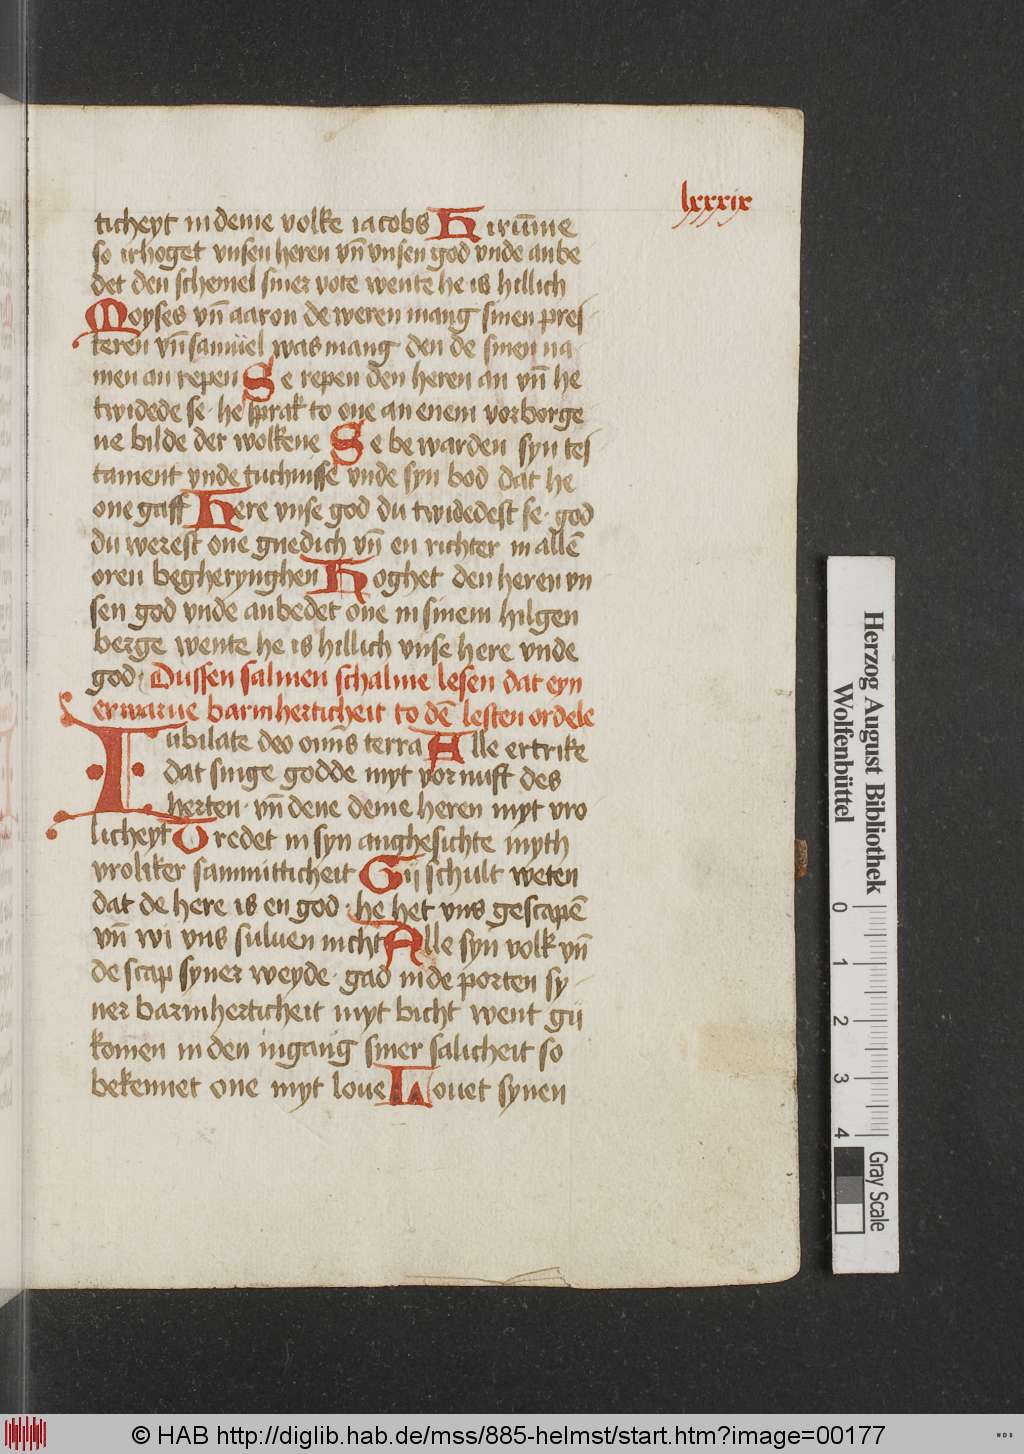 lxxxix
ticheyt in deme volke iacobs Hirūme
so irhoget vnsen heren vn̄ vnsen god vnde anbe
det den schemel siner vote wente he is hillich
Moyses vn̄ aaron de weren mang sinen pres
teren vn̄ samuel was mang den de sinen na
men an repen Se repen den heren an vn̄ he
twidede se · he sprak to one an enem vorborge
ne bilde der wolkene Se bewarden syn tes
tament vnde tuchnisse vnde syn bod dat he
one gaff Here vnse god du twidedest se · god
du werest one gnedich vn̄ en richter in allē
oren begherynghen Hoghet den heren vn
sen god vnde anbedet one in sinem hilgen
berge wente he is hillich vnse here vnde
god · Dussen salmen schalme lesen dat eyn
erwarue barmherticheit to dē lesten ordele
Iubilate deo omīs terra Alle ertrike
dat singe godde myt vornuft des
herten · vn̄ dene deme heren myt vro
licheyt Tredet in syn anghesichte myth
vroliker sammitticheit Gij schult weten
dat de here is en god · he het vns gescapē
vn̄ wi vns suluen nicht Alle syn volk vn̄
de scap syner weyde · gad in de porten sy
ner barmherticheit myt bicht went gij
komen in den ingang siner salicheit so
bekennet one myt loue Louet synen
Herzog August Bibliothek
Wolfenbüttel
0 1 2 3 4
Gray Scale
© HAB http://diglib.hab.de/mss/885-helmst/start.htm?image=00177